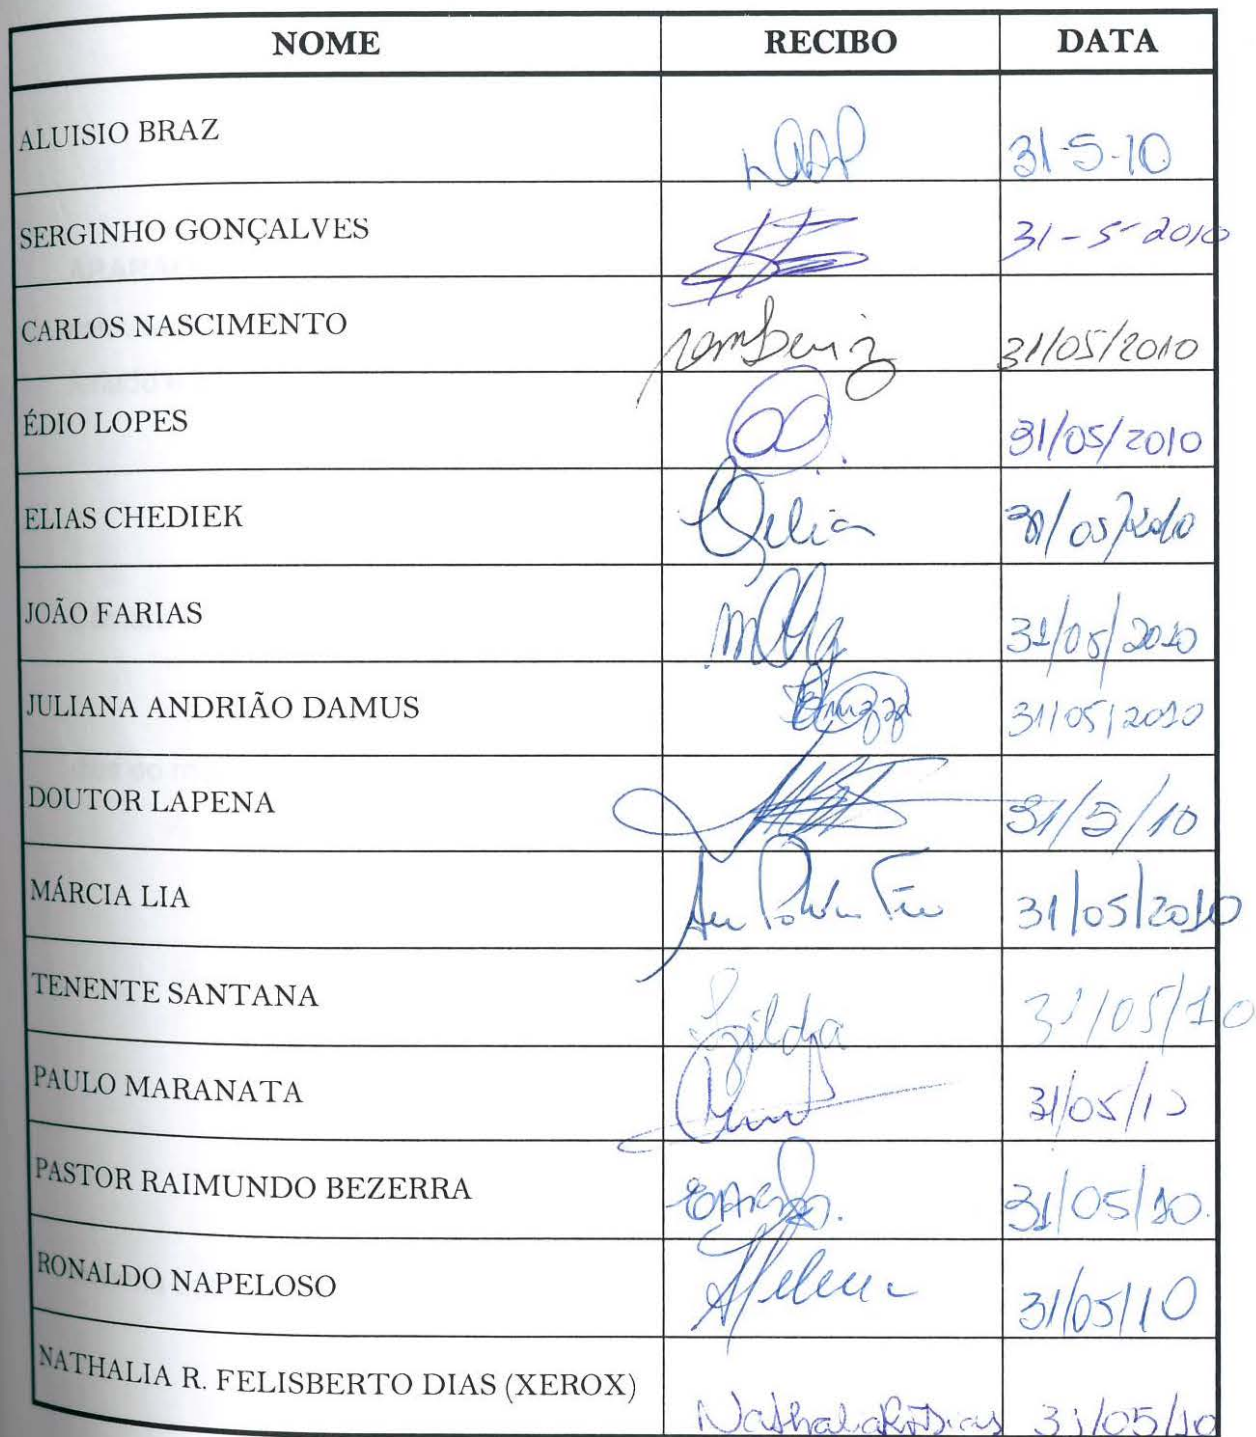 NOME RECIBO DATA
ALUISIO BRAZ 31-5-10
SERGINHO GONÇALVES 31-5-2010
CARLOS NASCIMENTO 31/05/2010
ÉDIO LOPES 31/05/2010
ELIAS CHEDIEK 31/05/2010
JOÃO FARIAS 31/05/2010
JULIANA ANDRIÃO DAMUS 31/05/2010
DOUTOR LAPENA 31/5/10
MÁRCIA LIA 31/05/2010
TENENTE SANTANA Gilda 31/05/10
PAULO MARANATA 31/05/10
PASTOR RAIMUNDO BEZERRA 31/05/10.
RONALDO NAPELOSO Helena 31/05/10
NATHALIA R. FELISBERTO DIAS (XEROX) 31/05/10